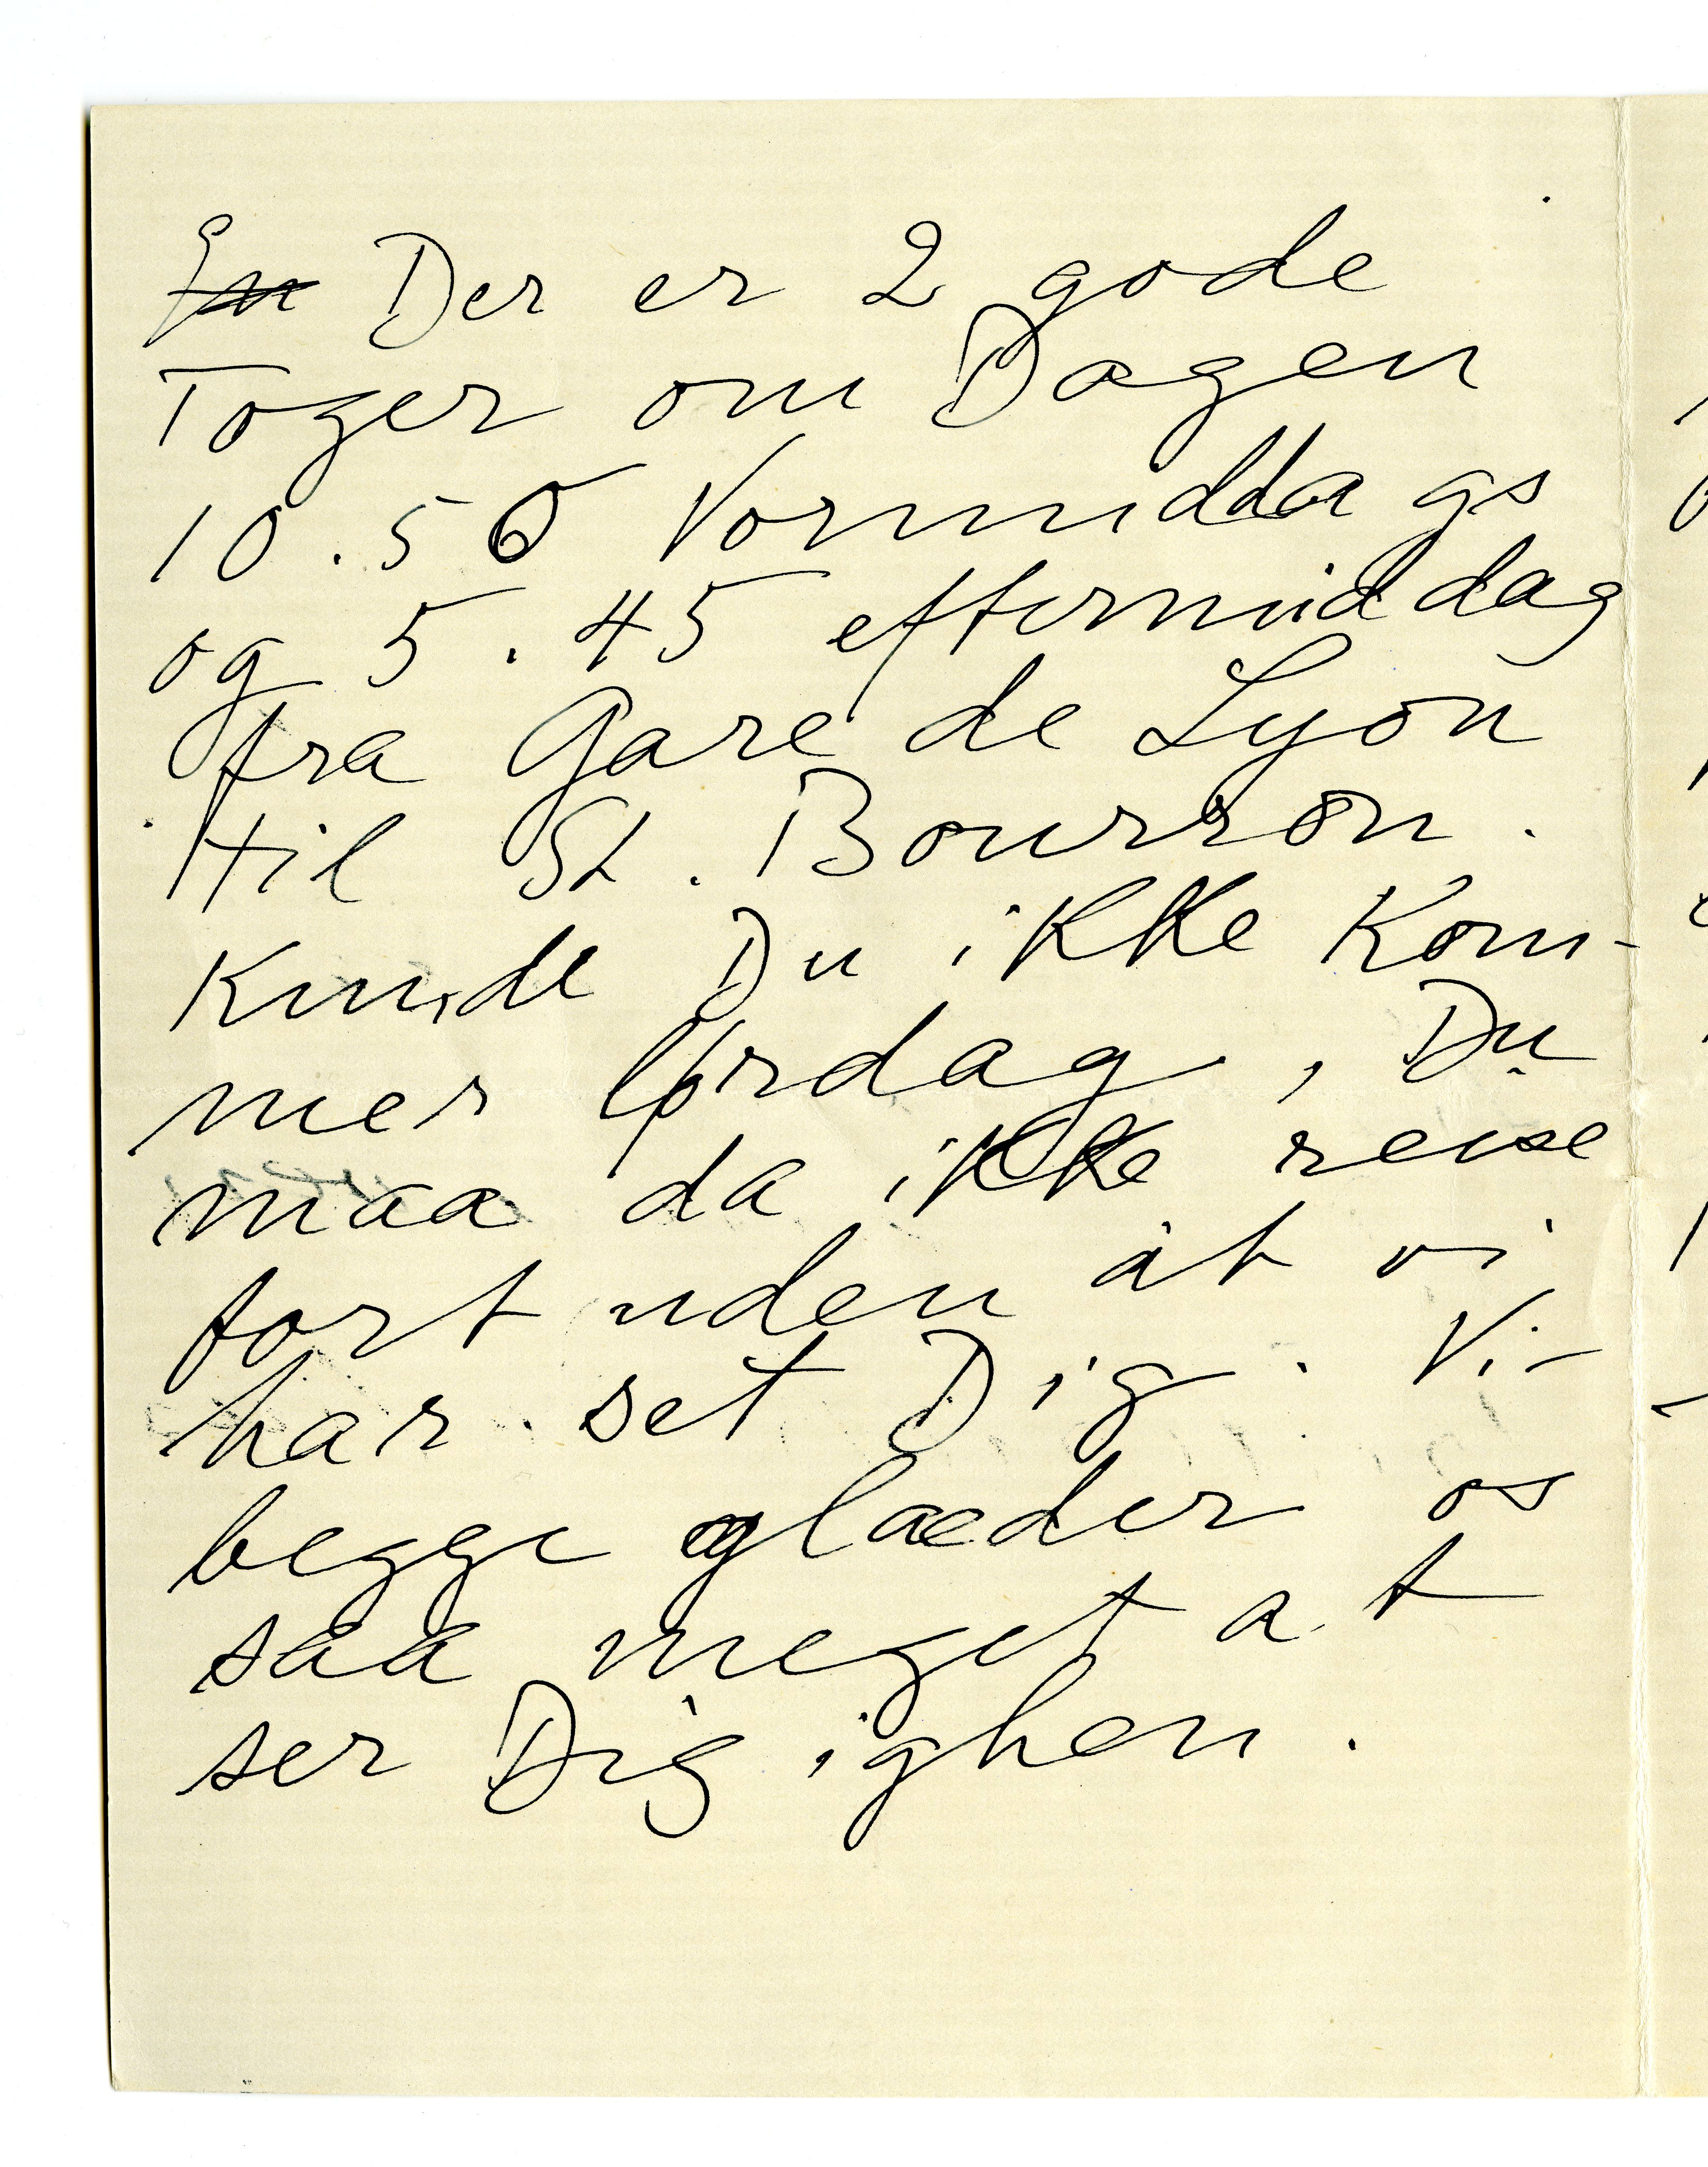 Der er 2 gode
Toger om Dagen
10.50 Vormiddags
og 5.45 eftermiddag
fra Gare de Lyon
til St. Bourron.
Kunde Du ikke Kom-
mer lørdag, Du
maa da ikke reise
fort uden at vi
har set Dig. Vi
begge glaeder os
saa meget at
ser Dig ighen.